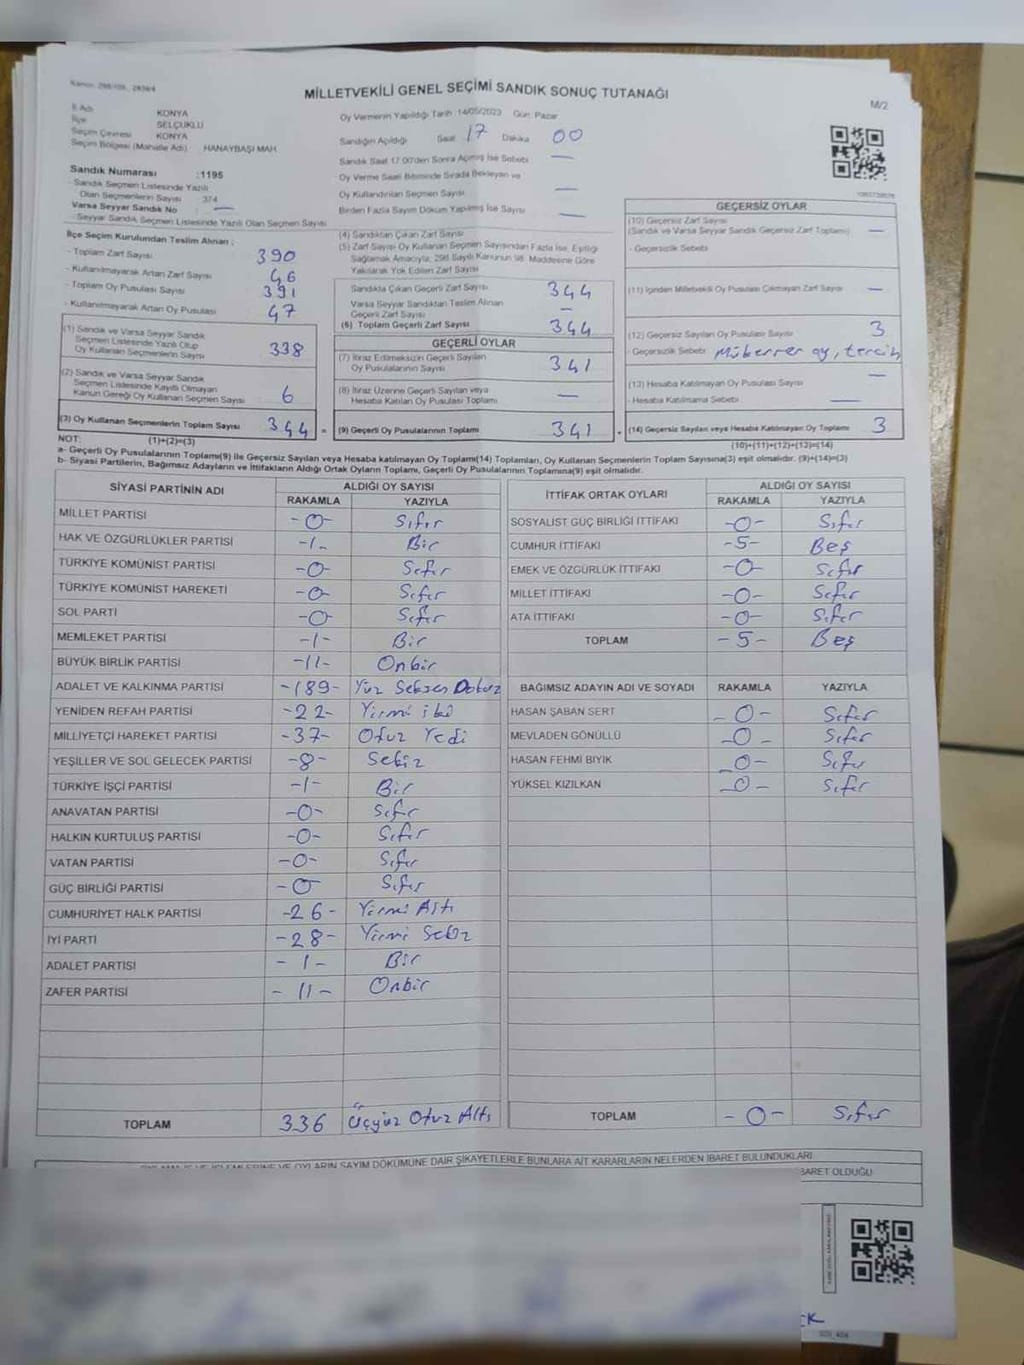 MİLLETVEKİLİ GENEL SEÇİMİ SANDIK SONUÇ TUTANAĞI
M/2
İl Adı KONYA
İlçe SELÇUKLU
Seçim Çevresi KONYA
Seçim Bölgesi (Mahalle Adı) HANAYBAŞI MAH.
Sandık Numarası :1195
- Sandık Seçmen Listesinde Yazılı
Olan Seçmenlerin Sayısı 374
Varsa Seyyar Sandık No —
- Seyyar Sandık Seçmen Listesinde Yazılı Olan Seçmen Sayısı
Oy Vermenin Yapıldığı Tarih :14/05/2023 Gün: Pazar
Sandığın Açıldığı Saat 17 Dakika 00
Sandık Saat 17.00'den Sonra Açılmış İse Sebebi —
Oy Verme Saati Bitiminde Sırada Bekleyen ve
Oy Kullandırılan Seçmen Sayısı —
Birden Fazla Sayım Döküm Yapılmış İse Sayısı —
İlçe Seçim Kurulundan Teslim Alınan ;
- Toplam Zarf Sayısı 390
- Kullanılmayarak Artan Zarf Sayısı 46
- Toplam Oy Pusulası Sayısı 391
- Kullanılmayarak Artan Oy Pusulası 47
(1) Sandık ve Varsa Seyyar Sandık
Seçmen Listesinde Yazılı Olup
Oy Kullanan Seçmenlerin Sayısı 338
(2) Sandık ve Varsa Seyyar Sandık
Seçmen Listesinde Kayıtlı Olmayan
Kanun Gereği Oy Kullanan Seçmen Sayısı 6
(3) Oy Kullanan Seçmenlerin Toplam Sayısı 344 =
(4) Sandıktan Çıkan Zarf Sayısı
(5) Zarf Sayısı Oy Kullanan Seçmen Sayısından Fazla İse, Eşitliği
Sağlamak Amacıyla, 298 Sayılı Kanunun 98. Maddesine Göre
Yakılarak Yok Edilen Zarf Sayısı
Sandıkta Çıkan Geçerli Zarf Sayısı 344
Varsa Seyyar Sandıktan Teslim Alınan
Geçerli Zarf Sayısı —
(6) Toplam Geçerli Zarf Sayısı 344
GEÇERLİ OYLAR
(7) İtiraz Edilmeksizin Geçerli Sayılan
Oy Pusulalarının Sayısı 341
(8) İtiraz Üzerine Geçerli Sayılan veya
Hesaba Katılan Oy Pusulası Toplamı —
(9) Geçerli Oy Pusulalarının Toplamı 341 +
GEÇERSİZ OYLAR
(10) Geçersiz Zarf Sayısı
(Sandık ve Varsa Seyyar Sandık Geçersiz Zarf Toplamı) —
- Geçersizlik Sebebi
(11) İçinden Milletvekili Oy Pusulası Çıkmayan Zarf Sayısı —
(12) Geçersiz Sayılan Oy Pusulası Sayısı 3
- Geçersizlik Sebebi Müberrer oy, tercih
(13) Hesaba Katılmayan Oy Pusulası Sayısı —
- Hesaba Katılmama Sebebi —
(14) Geçersiz Sayılan veya Hesaba Katılmayan Oy Toplamı 3
NOT: (1)+(2)=(3) (10)+(11)+(12)+(13)=(14)
a- Geçerli Oy Pusulalarının Toplamı(9) ile Geçersiz Sayılan veya Hesaba katılmayan Oy Toplamı(14) Toplamları, Oy Kullanan Seçmenlerin Toplam Sayısına(3) eşit olmalıdır. (9)+(14)=(3)
b- Siyasi Partilerin, Bağımsız Adayların ve İttifakların Aldığı Ortak Oyların Toplamı, Geçerli Oy Pusulalarının Toplamına(9) eşit olmalıdır.
SİYASİ PARTİNİN ADI ALDIĞI OY SAYISI
RAKAMLA YAZIYLA
MİLLET PARTİSİ -0- Sıfır
HAK VE ÖZGÜRLÜKLER PARTİSİ -1- Bir
TÜRKİYE KOMÜNİST PARTİSİ -0- Sıfır
TÜRKİYE KOMÜNİST HAREKETİ -0- Sıfır
SOL PARTİ -0- Sıfır
MEMLEKET PARTİSİ -1- Bir
BÜYÜK BİRLİK PARTİSİ -11- Onbir
ADALET VE KALKINMA PARTİSİ -189- Yüz Seksen Dokuz
YENİDEN REFAH PARTİSİ -22- Yirmi iki
MİLLİYETÇİ HAREKET PARTİSİ -37- Otuz Yedi
YEŞİLLER VE SOL GELECEK PARTİSİ -8- Sekiz
TÜRKİYE İŞÇİ PARTİSİ -1- Bir
ANAVATAN PARTİSİ -0- Sıfır
HALKIN KURTULUŞ PARTİSİ -0- Sıfır
VATAN PARTİSİ -0- Sıfır
GÜÇ BİRLİĞİ PARTİSİ -0 Sıfır
CUMHURİYET HALK PARTİSİ -26- Yirmi Altı
İYİ PARTİ -28- Yirmi Sekiz
ADALET PARTİSİ -1- Bir
ZAFER PARTİSİ -11- Onbir
TOPLAM 336 Üçyüz Otuz Altı
İTTİFAK ORTAK OYLARI ALDIĞI OY SAYISI
RAKAMLA YAZIYLA
SOSYALİST GÜÇ BİRLİĞİ İTTİFAKI -0- Sıfır
CUMHUR İTTİFAKI -5- Beş
EMEK VE ÖZGÜRLÜK İTTİFAKI -0- Sıfır
MİLLET İTTİFAKI -0- Sıfır
ATA İTTİFAKI -0- Sıfır
TOPLAM -5- Beş
BAĞIMSIZ ADAYIN ADI VE SOYADI RAKAMLA YAZIYLA
HASAN ŞABAN SERT -0- Sıfır
MEVLADEN GÖNÜLLÜ -0- Sıfır
HASAN FEHMİ BIYIK -0- Sıfır
YÜKSEL KIZILKAN -0- Sıfır
TOPLAM -0- Sıfır
OYLARIN SAYIM DÖKÜMÜNE DAİR ŞİKAYETLERLE BUNLARA AİT KARARLARIN NELERDEN İBARET BULUNDUKLARI
BARET OLDUĞU